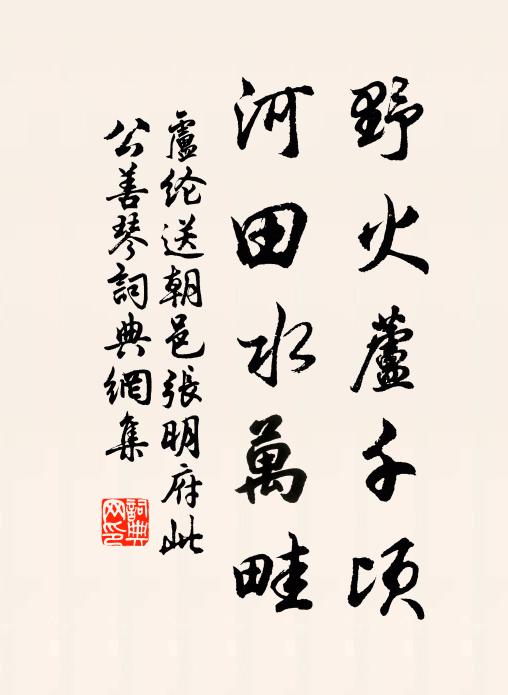 野火蘆千頃
河田水萬畦
盧纶送朝邑張明府此
公善琴詞典網集
詞典
网印